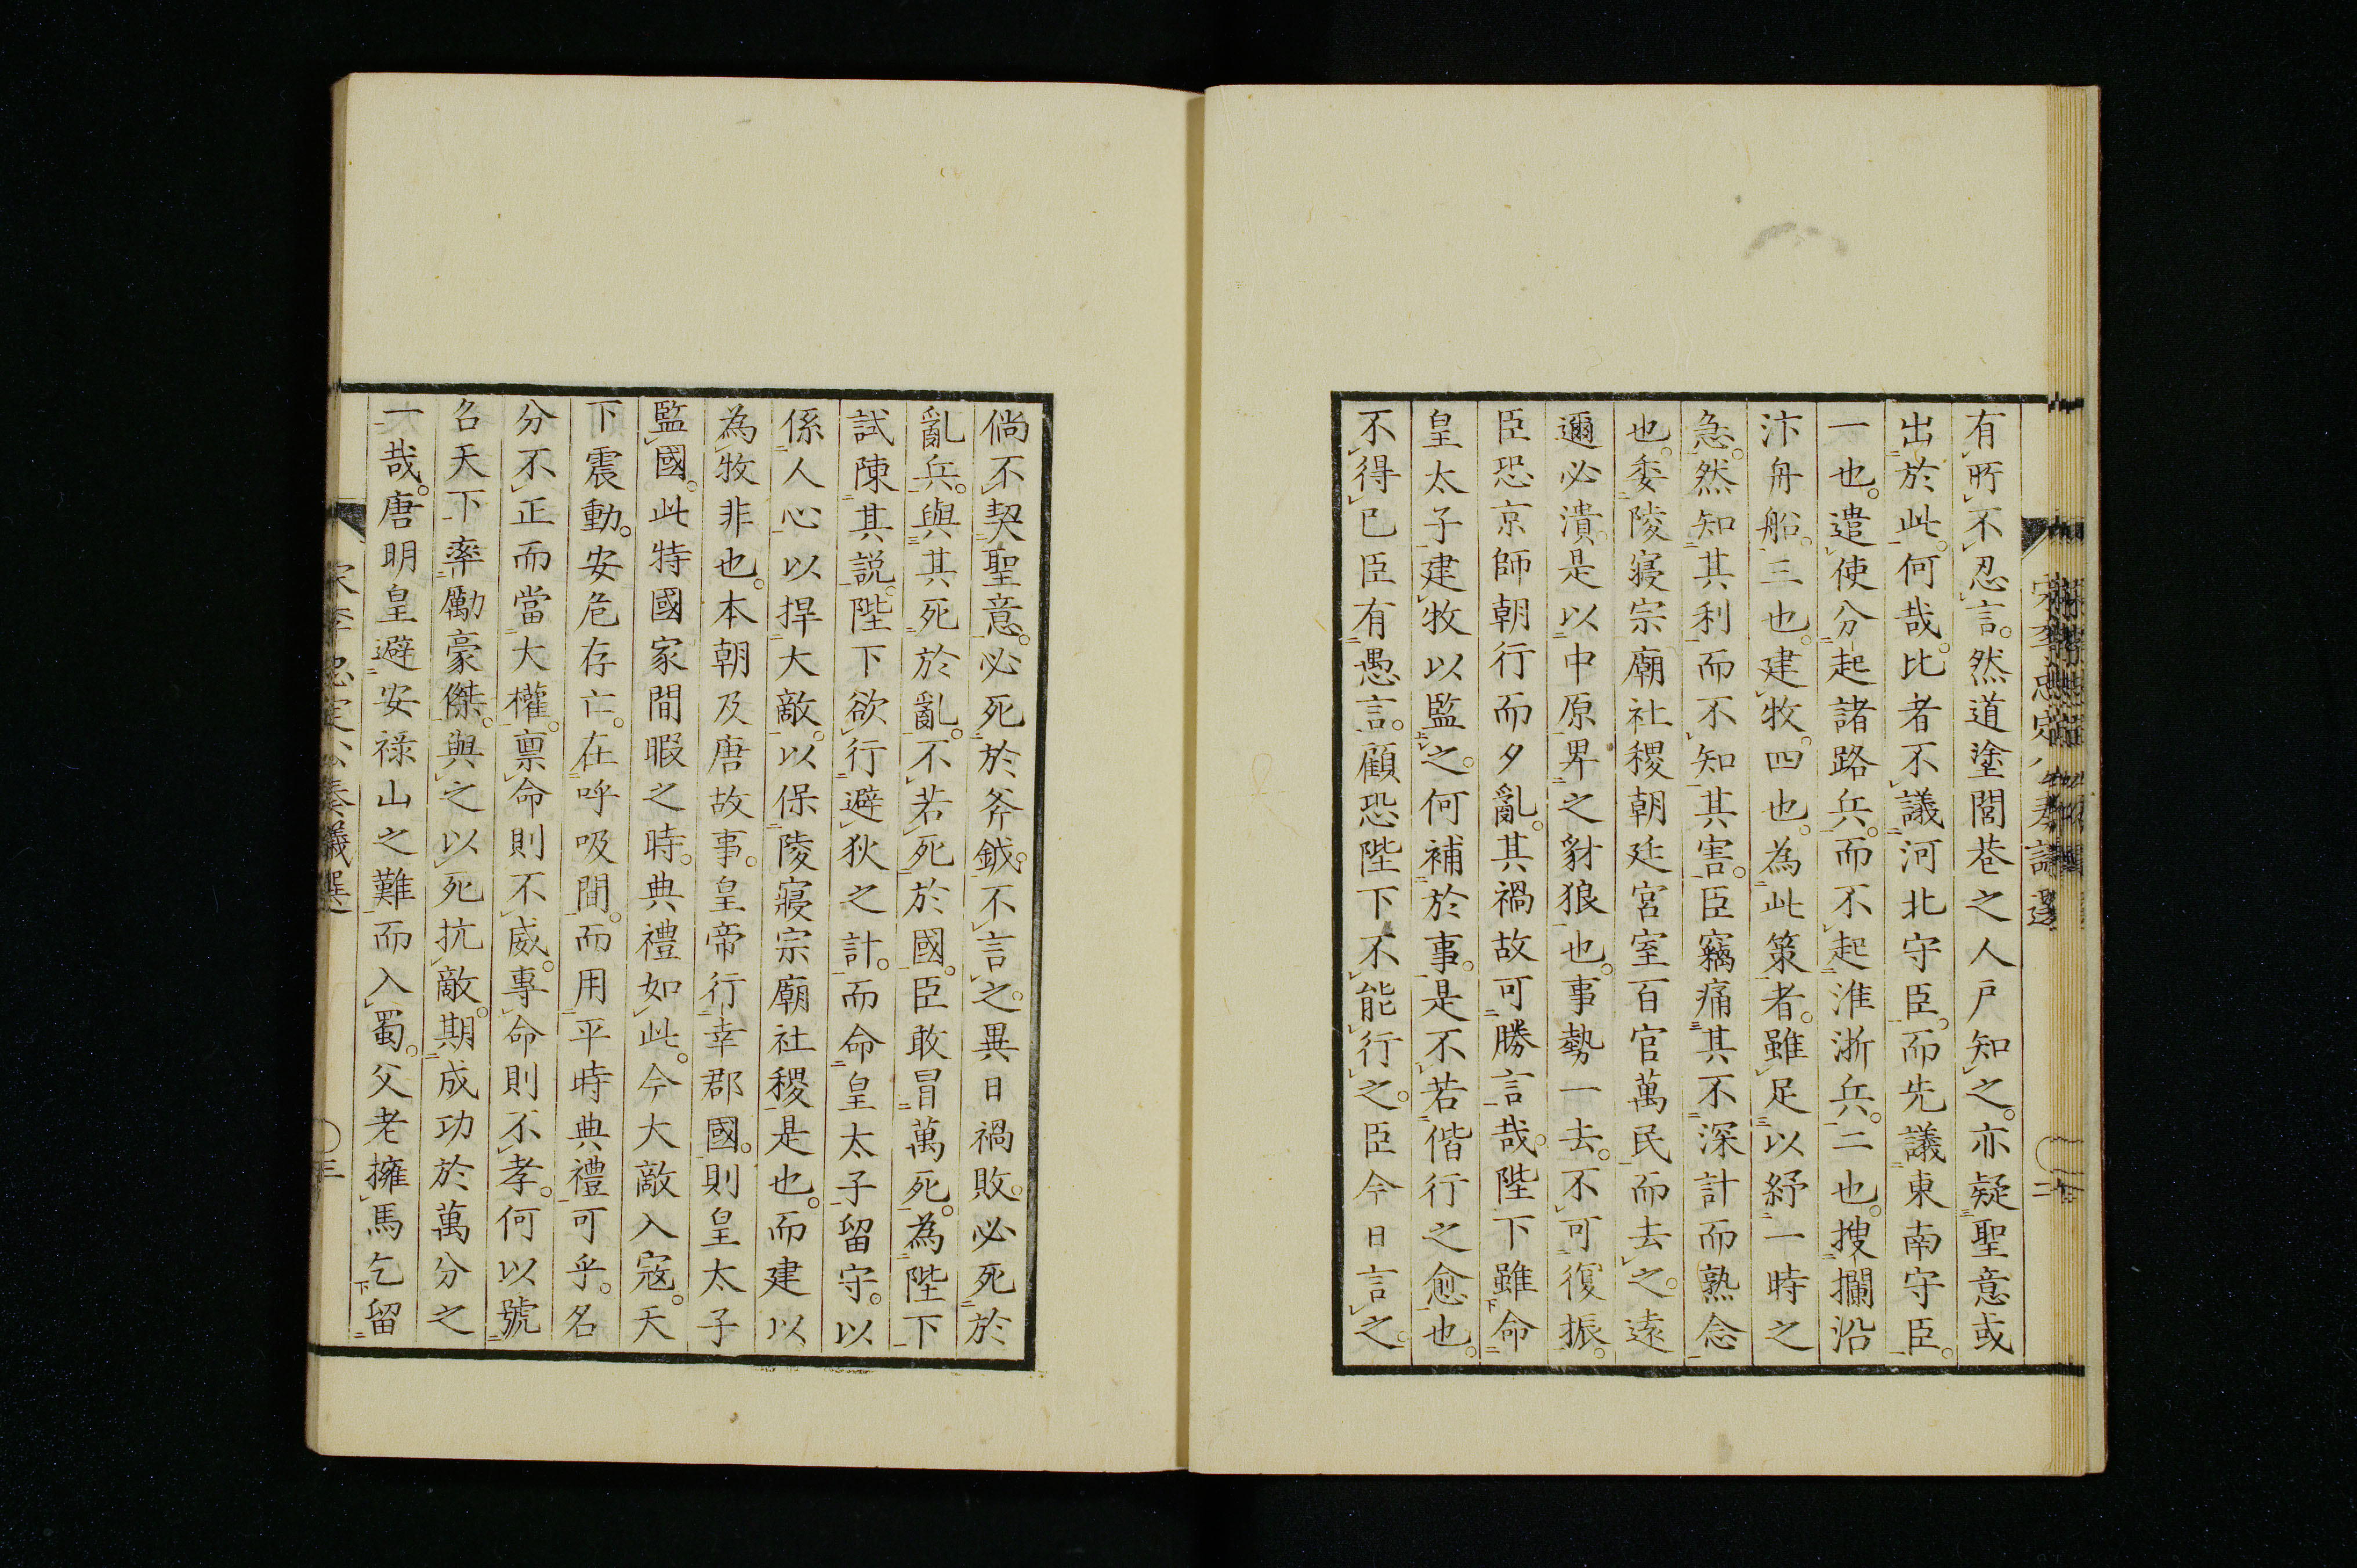 有所不忍言。然道塗閭巷之人戸知之。亦疑聖意或
出於此。何哉。比者不議河北守臣。而先議東南守臣。
一也。遣使分起諸路兵。而不起淮浙兵。二也。搜攔沿
汴舟船。三也。建牧。四也。為此策者。雖足以紓一時之
急。然知其利而不知其害。臣竊痛其不深計而熟念
也。委陵寢宗廟社稷朝廷宮室百官萬民而去之。遠
邇必潰。是以中原畀之豺狼也。事勢一去。不可復振。
臣恐京師朝行而夕亂。其禍故可勝言哉。陛下雖命
皇太子建牧以監之。何補於事。是不若偕行之愈也。
不得已臣有愚言。顧恐陛下不能行之。臣今日言之。
倘不契聖意。必死於斧鉞。不言之。異日禍敗。必死於
亂兵。與其死於亂。不若死於國。臣敢冒萬死。為陛下
試陳其説。陛下欲行避狄之計。而命皇太子留守。以
係人心以捍大敵。以保陵寢宗廟社稷是也。而建以
為牧非也。本朝及唐故事。皇帝行幸郡國。則皇太子
監國。此特國家間暇之時。典禮如此。今大敵入寇。天
下震動。安危存亡。在呼吸間。而用平時典禮可乎。名
分不正而當大權。禀命則不威。專命則不孝。何以號
召天下率勵豪傑。與之以死抗敵。期成功於萬分之
一哉。唐明皇避安祿山之難而入蜀。父老擁馬乞留
宋李忠定公奏議選
三